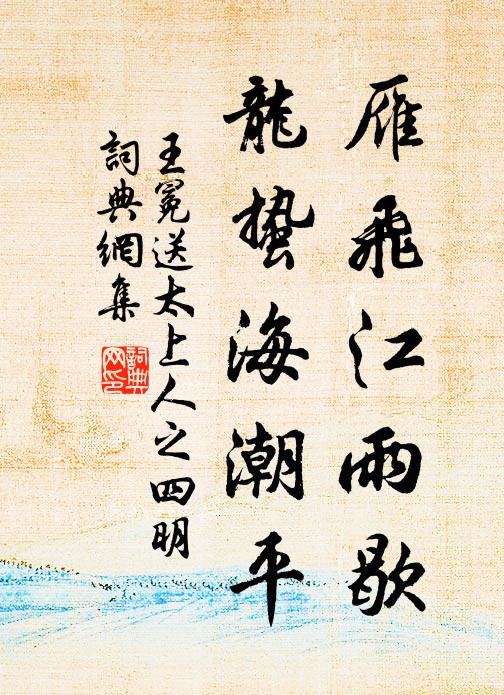 雁飛江雨歇
龍蟄海潮平
王冕送太上人之四明
詞典網集
詞典网印